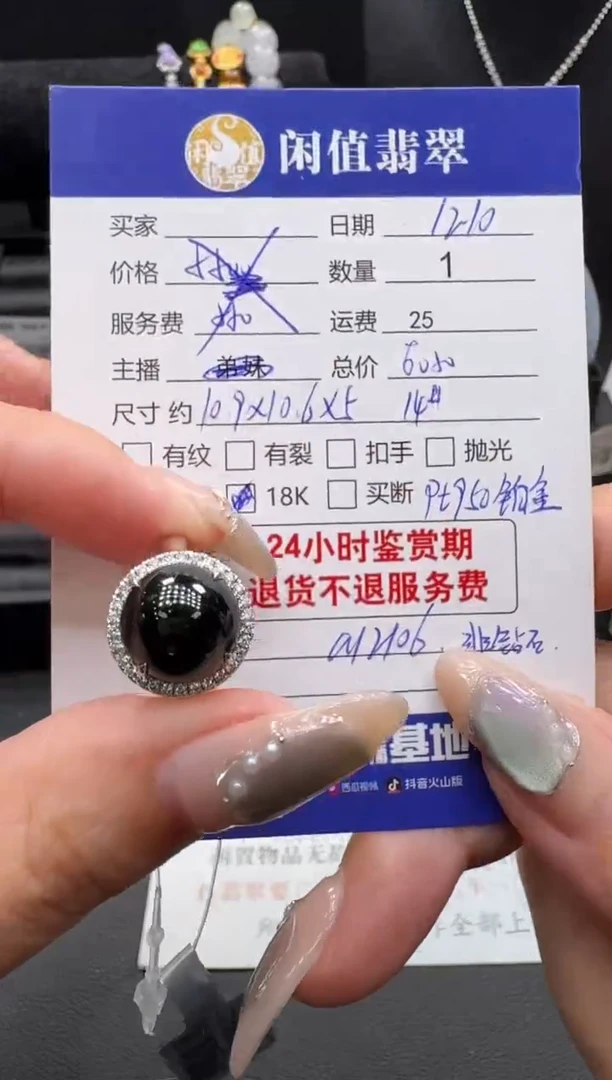 闲值翡翠
闲值翡翠
买家 日期 12-10
价格 数量 1
服务费 运费 25
主播 弟妹 总价
尺寸约 10.9X10.6X5 14#
有纹 有裂 扣手 抛光
18K 买断 Pt950铂金
24小时鉴赏期
退货不退服务费
非钻石
基地
西瓜视频 抖音火山版
全部上